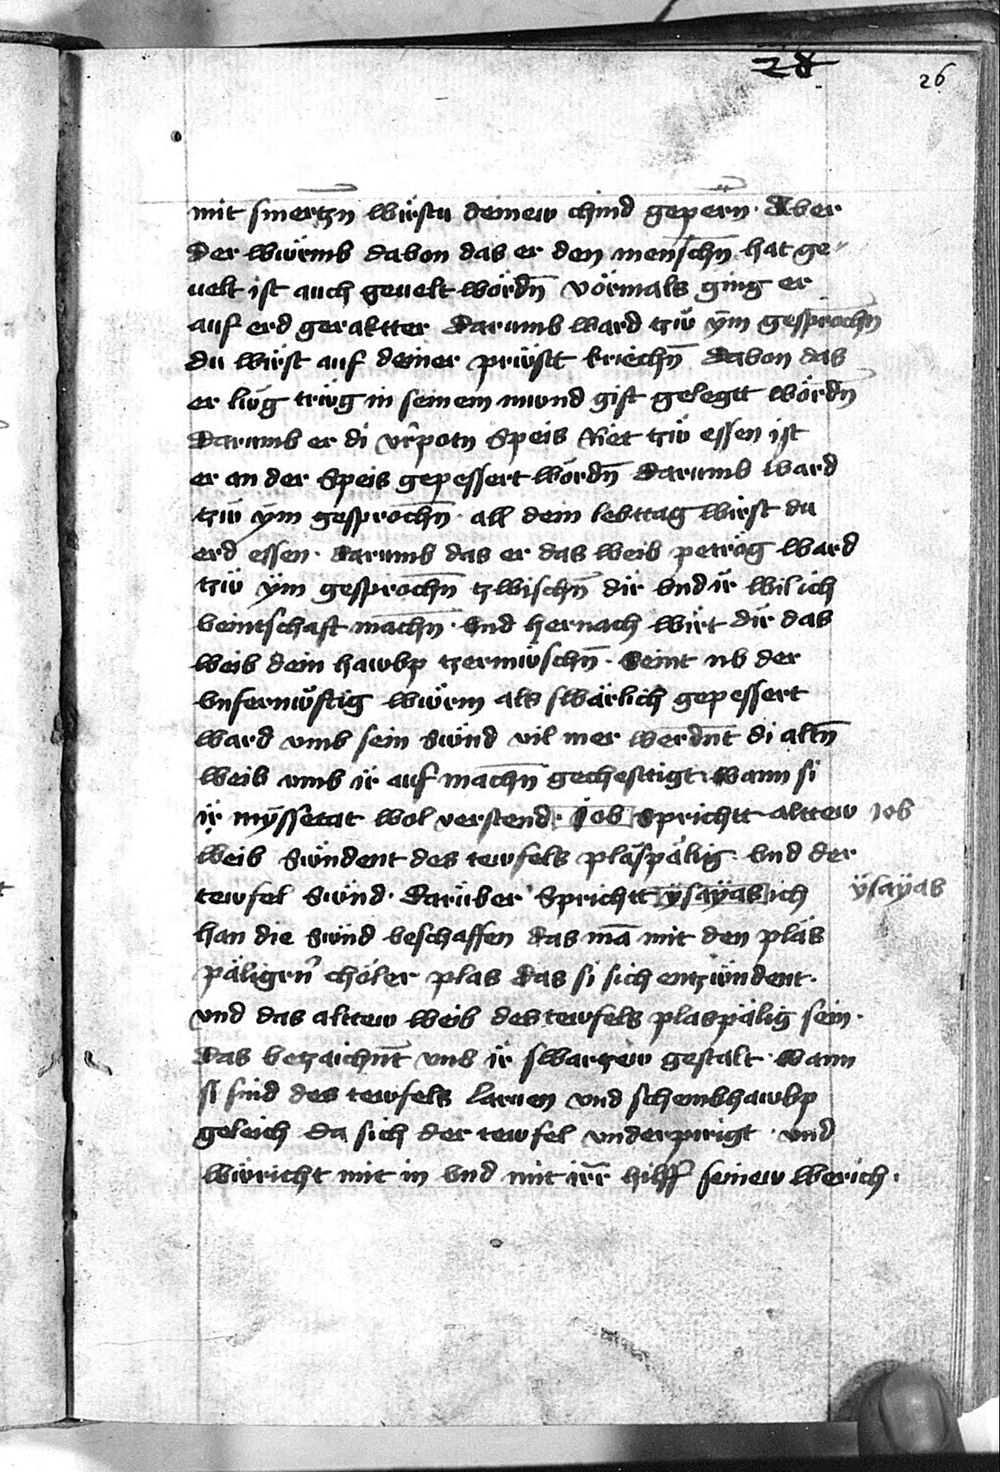 28
26
mit smertzn̄ würstu deinew chind gepern̄· Aber
der wurmb dabon das er den menschn̄ hat ge⸗
uelt ist auch geuelt wördn̄ vörmals ging er
auf erd geraktter darumb ward tzŵ ẏm gesprochn̄
du wirst auf deiner prüstt kriechn̄ dabon das
er lüg trüg in seinem mund gift gelegtt wördn̄
darumb er di vr̂potn Speis Riet tzŵ essen ist
er an der Speis gepessert wördn̄ darumb ward
tzŵ ẏm gesprochn̄· all dein lebttag wirst du
erd essen· darumb das er das weib petrög ward
tzŵ ÿm gesprochn̄ tzwischn̄ dir bnd ir wil ich
beintschaft machn̄· bnd hernach wirt dir das
weib dein hawbp tzermüschn̄· Seint nb der
bnfernüftig würm als swärlich gepessert
ward vmb sein Sünd vil mer werdnt̄ di altn̄
weib vmb ir auf machn̄ gechesttigt· wann si
ir mÿssetat wol verstend· Job Sprichtt alttew
Job
weib Sündent des tewfels pläspälig· bnd der
tewfel Sünd· darüber Sprichtt ÿsaÿas ich
ÿsaÿas
han die Sünd beschaffen das mā mit den pläs
päligrn̂ chöler plas das si sich entzündent·
vnd das alttew weib des tewfels plaspälig sein·
das betzaichnt̄ vns ir swartzew gestalt· wann
si sind des tewfels laruen vnd schembhawbp
geleich da sich der tewfel vnderpirigt· vnd
würicht mit in bnd mit irr̄ hilff seinew werich·